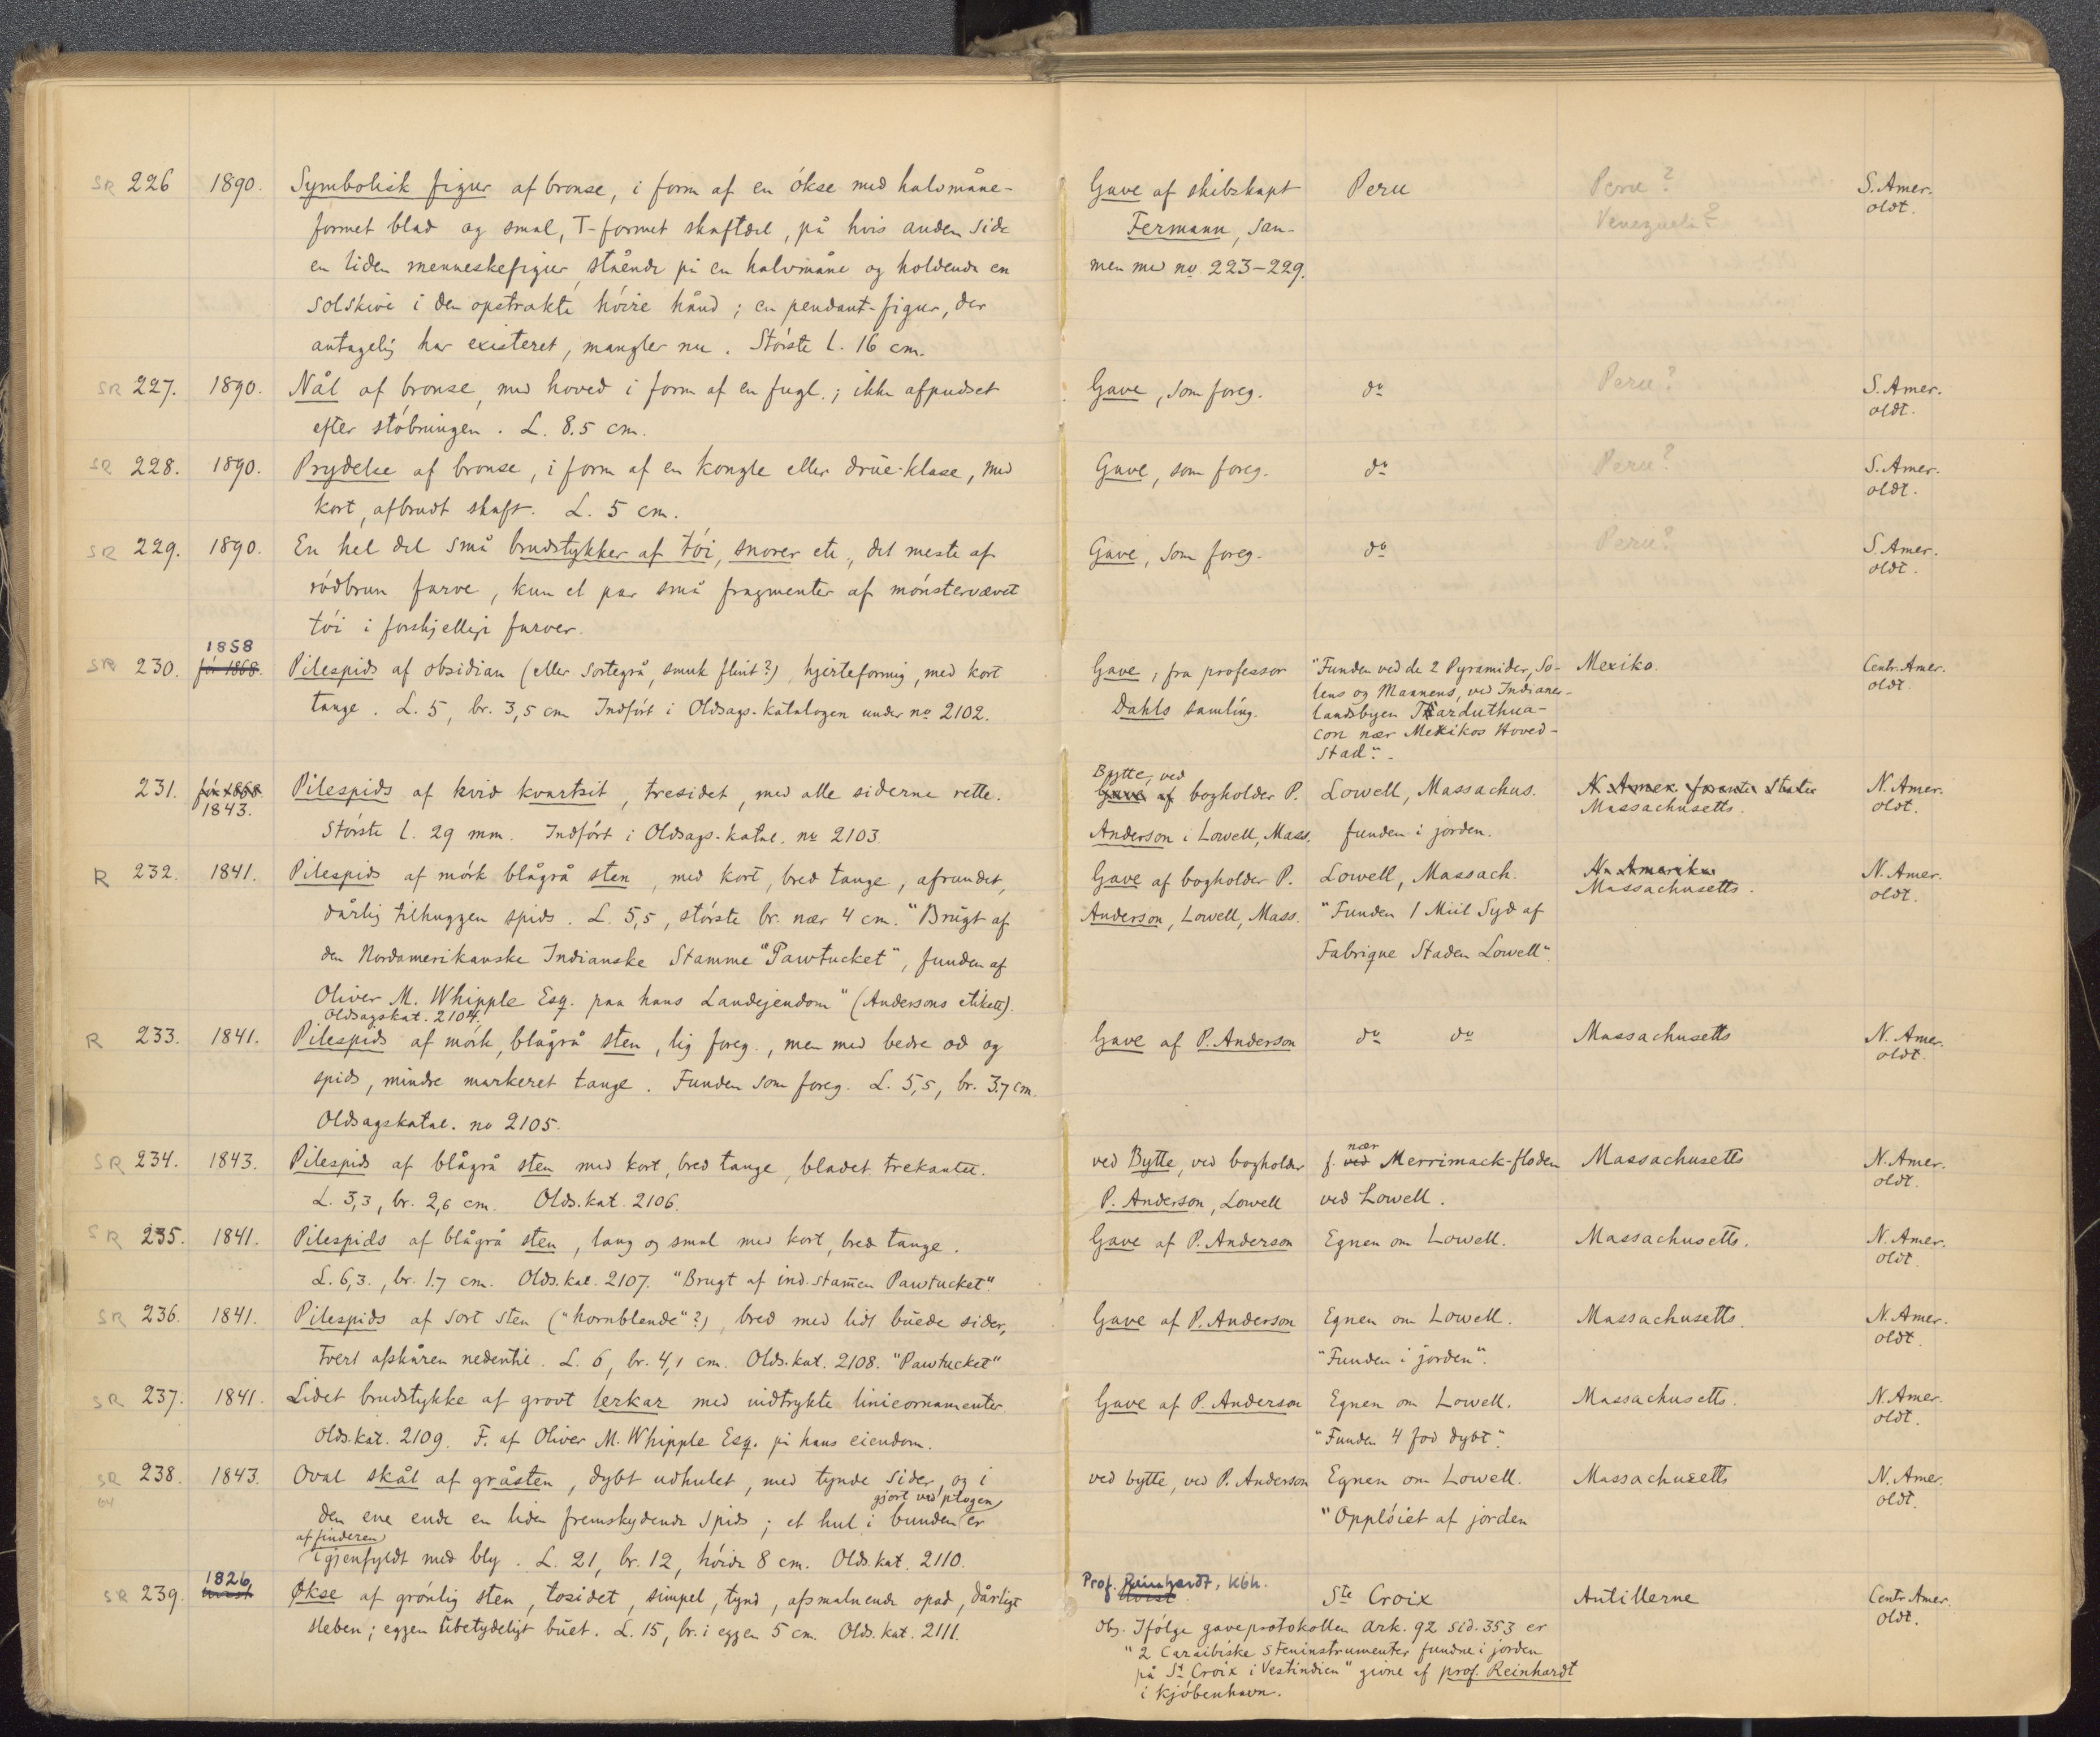 SR 226 1890. Symbolisk figur af bronse, i form af en ökse med halvmåne- Gave af skibskapt Peru Peru? S. Amer.
formet blad og smal, T-formet skaftdel, på hvis anden side Fermann, sam- Venezuela? oldt.
en liden menneskefigur, stående på en halvmåne og holdende en men med no 223-229.
solskive i den opstrakte höire hånd; en pendant-figur, der
antagelig har existeret, mangler nu. Störste l. 16 cm.
SR 227. 1890. Nål af bronse, med hoved i form af en fugl; ikke afpudset Gave, som foreg. do Peru? S. Amer.
efter stöbningen. L. 8.5 cm. oldt.
SR 228. 1890. Prydelse af bronse, i form af en kongle eller drue-klase, med Gave, som foreg. do Peru? S. Amer.
kort, afbrudt skaft. L. 5 cm. oldt.
SR 229. 1890. En hel del små brudstykker af töi, snorer etc., det meste af Gave, som foreg. do Peru? S. Amer.
rödbrun farve, kun et par små fragmenter af mönstervævet oldt.
töi i forskjellige farver.
1858
SR 230. för 1868. Pilespids af obsidian (eller sortegrå, smuk flint?), hjerteformig, med kort Gave, fra professor "Funden ved de 2 Pyramider, So- Mexiko. Centr. Amer.
tange. L. 5, br. 3,5 cm Indfört i Oldsags-katalogen under no 2102. Dahls samling. lens og Maanens, ved Indianer- oldt.
landsbyen
con nær Mexikos Hoved-
stad".
Bytte, ved
231. för 1868 Pilespids af hvid kvartsit, tresidet, med alle siderne rette. Gave af bogholder P. Lowell, Massachus. N. Amer. forenede Stater N. Amer.
1843. Störste l. 29 mm. Indfört i Oldsags-katal. no 2103. Anderson i Lowell, Mass. funden i jorden. Massachusetts. oldt.
R 232. 1841. Pilespids af mörk blågrå sten, med kort, bred tange, afrundet, Gave af bogholder P. Lowell, Massach. N. Amerika N. Amer.
dårlig tilhuggen spids. L. 5,5, störste br. nær 4 cm. "Brugt af Anderson, Lowell, Mass. "Funden 1 Miil Syd af Massachusetts. oldt.
den Nordamerikanske Indianske Stamme "Pawtucket", funden af Fabrique Staden Lowell".
Oliver M. Whipple Esq. paa hans Landejendom" (Andersons etikett).
Oldsagskat. 2104.
R 233. 1841. Pilespids af mörk, blågrå sten, lig foreg., men med bedre od og Gave af P. Anderson do do Massachusetts N. Amer.
spids, mindre markeret tange. Funden som foreg. L. 5,5, br. 3.7 cm. oldt.
Oldsagskatal. no 2105.
SR 234. 1843. Pilespids af blågrå sten med kort, bred tange, bladet trekantet. ved Bytte, ved bogholder f. ved nær Merrimack-floden Massachusetts N. Amer.
L. 3,3, br. 2,6 cm. Olds.kat. 2106. P. Anderson, Lowell ved Lowell. oldt.
SR 235. 1841. Pilespids af blågrå sten, lang og smal med kort, bred tange. Gave af P. Anderson Egnen om Lowell. Massachusetts. N. Amer.
L. 6,3., br. 1.7 cm. Olds.kat. 2107. "Brugt af ind. stam̅en Pawtucket". oldt.
SR 236. 1841. Pilespids af sort sten ("hornblende"?), bred med lidt buede sider, Gave af P. Anderson Egnen om Lowell. Massachusetts. N. Amer.
tvert afskåren nedentil. L. 6, br. 4,1 cm. Olds.kat. 2108. "Pawtucket" "Funden i jorden". oldt.
SR 237. 1841. Lidet brudstykke af grovt lerkar med indtrykte linieornamenter Gave af P. Anderson Egnen om Lowell. Massachusetts. N. Amer.
Olds.kat. 2109. F. af Oliver M. Whipple Esq. på hans eiendom. "Funden 4 fod dybt". oldt.
SR 238. 1843. Oval skål af gråsten, dybt udhulet, med tynde sider, og i ved bytte, ved P. Anderson Egnen om Lowell. Massachusetts N. Amer.
64 gjort ved plogen
den ene ende en liden fremskydende spids; et hul i bunden er "Opplöiet af jorden oldt.
af finderen
igjenfyldt med bly. L. 21, br. 12, höide 8 cm. Olds.kat. 2110.
1826 Prof. Reinhardt, Kbh.
SR 239. Økse af grönlig sten, tosidet, simpel, tynd, afsmalnende opad, dårligt Ste Croix Antillerne Centr. Amer.
sleben; eggen ubetydeligt buet. L. 15, br. i eggen 5 cm. Olds.kat. 2111. oldt.
Obs. Ifölge gaveprotokollen Ark. 92 sid. 353 er
"2 Caraibiske steninstrumenter fundne i jorden
på St Croix i Vestindien" givne af prof. Reinhardt
i Kjöbenhavn.